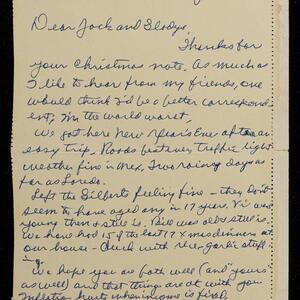 Dear Jack and Gladys,
Thanks for
your Christmas note. As much as
I like to hear from my friends, one
would think I'd be a better correspond
ent, I'm the world worst,
We got here New Years Eve after an
easy trip. Roads best ever, traffic light
weather fine in Mex, Two rainy days as
far as Laredo.
Left the Gilberts feeling fine - they don't
seem to have aged any in 17 years. Vi was
young then & still is, Bill was old & still is.
We have had 15 of the last 17 Xmas dinners at
our house - duck with rice-garlic stuff-
ing.
We hope you are both well (and "yours"
as well) and that things are ok with you
Inflation hurts when income is fixed,